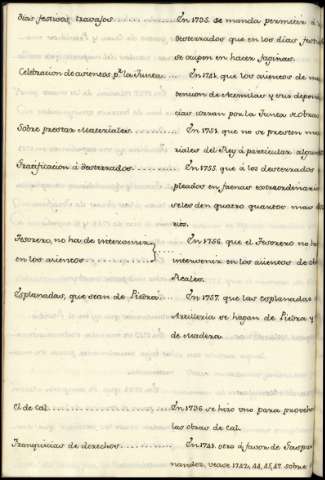 Dias festivos, travajos ........ En 1705. se manda permitir á
desterrados que en los dias
se ocupen en hacer faginas.
Celebracion de asientos pr. la Junta. En 1751. que los asientos de
tencion de Acemilas y sus
corran por la Junta de obras
Sobre prestar Materiales ........ En 1751. que no se presten
riales del Rey á particular
Gratificacion á desterrados ....... En 1755. que á los desterrados
pleados en faenas extraordinarias
seles den quatro quartos mas
Tesorero, no ha de intervenir } .... En 1756. que el Tesorero no
en los asientos intervenir en los asientos de
Reales.
Esplanadas, que sean de Piedra .... En 1757. que las esplanadas
Artilleria se hagan de Piedra y
de madera.
Et de Cal ............ En 1736. se hizo uno para
las obras de Cal.
Franquicias de derechos ........ En 1741. otro á favor de
nandez, vease 1742, 44, 45, 47. sobre